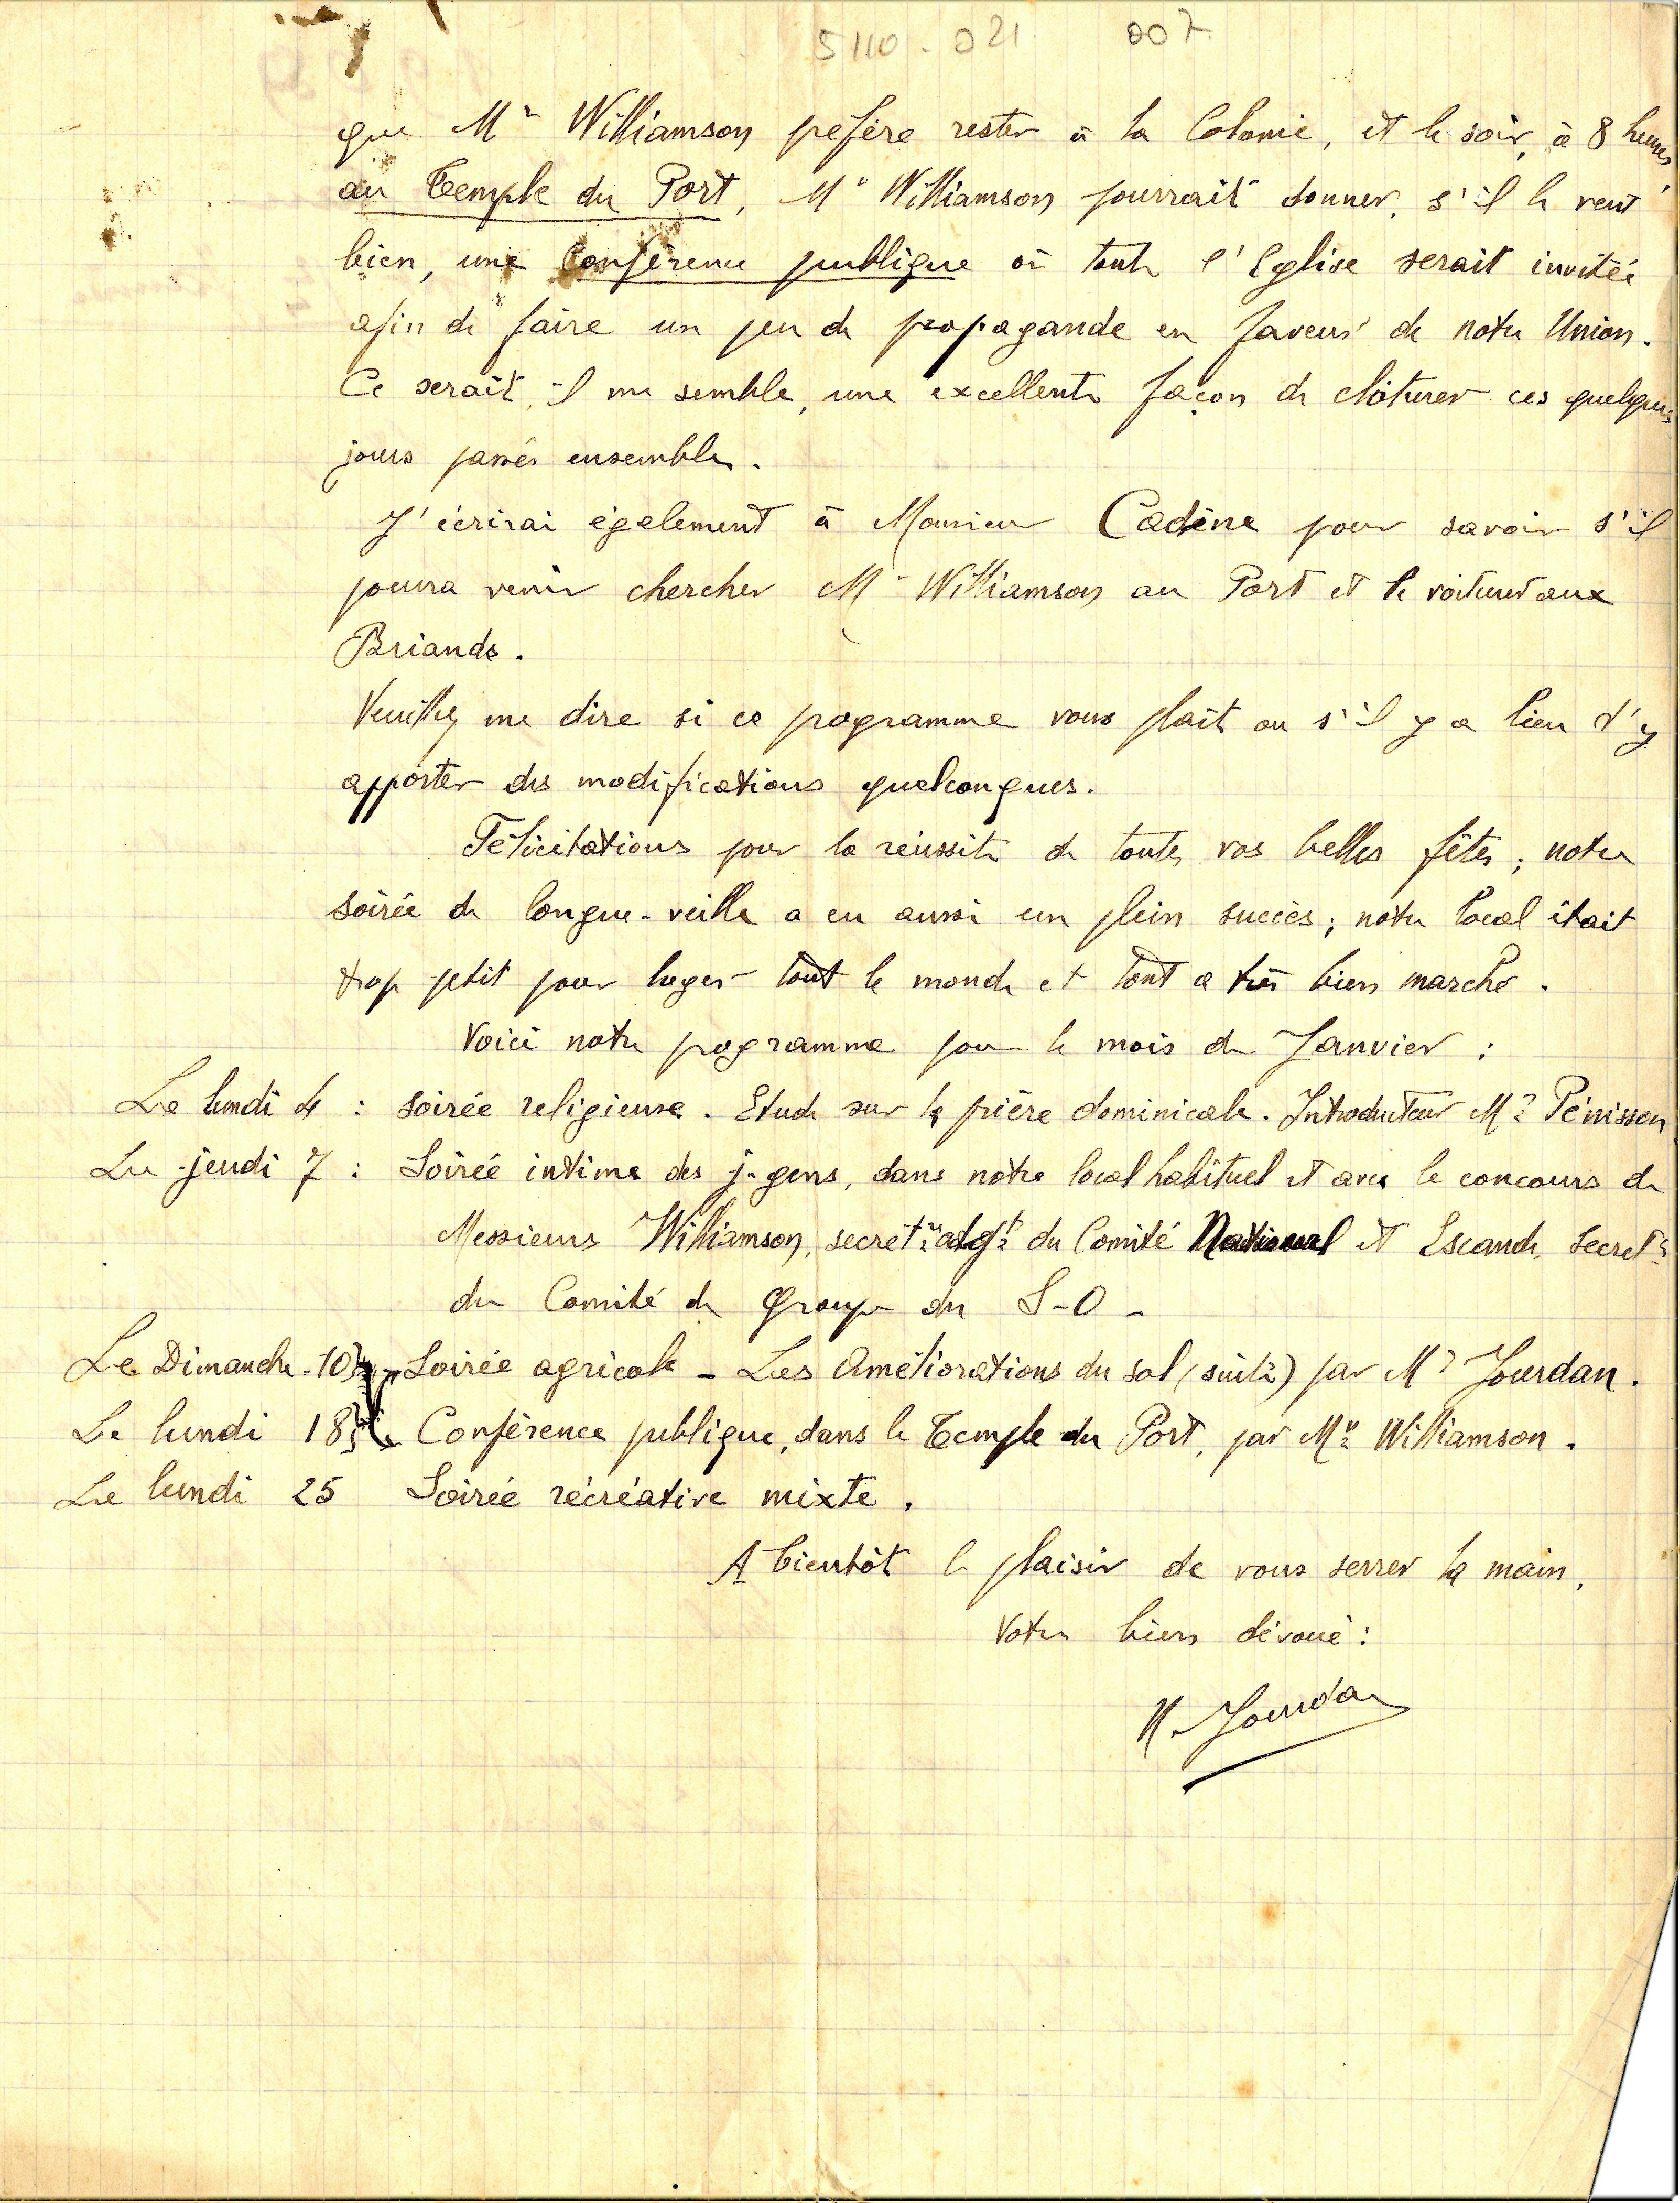 5110-021 007
que Mr Williamson préfère rester à la Colonie, et le soir, à 8 heures,
au Temple du Port, Mr Williamson pourrait donner, s'il le veut
bien, une Conférence publique où toute l'Eglise serait invitée
afin de faire un peu de propagande en faveur de notre Union.
Ce serait, il me semble, une excellente façon de clôturer ces quelques
jours passés ensemble.
J'écrirai également à Monsieur Cadène pour savoir s'il
pourra venir chercher Mr Williamson au Port et le voiturer aux
Briands.
Veuillez me dire si ce programme vous plaît ou s'il y a lieu d'y
apporter des modifications quelconques.
Félicitations pour la réussite de toutes vos belles fêtes; notre
soirée de longue-veille a eu aussi un plein succès; notre local était
trop petit pour loger tout le monde et tout a très bien marché.
Voici notre programme pour le mois de Janvier :
Le lundi 4 : soirée religieuse. Etude sur la prière dominicale. Introducteur Mr Pénisson
Le jeudi 7 : Soirée intime des j. gens, dans notre local habituel et avec le concours de
Messieurs Williamson, secrétre adgt du Comité National et Escande, secretre
du Comité de Groupe du S-O-
Le Dimanche 10 Soirée agricole - Les Améliorations du sol (suite) par Mr Jourdan.
Le lundi 18 Conférence publique, dans le Temple du Port, par Mr Williamson.
Le lundi 25 Soirée récréative mixte.
A bientôt le plaisir de vous serrer la main,
Votre bien dévoué :
N. Jourdan